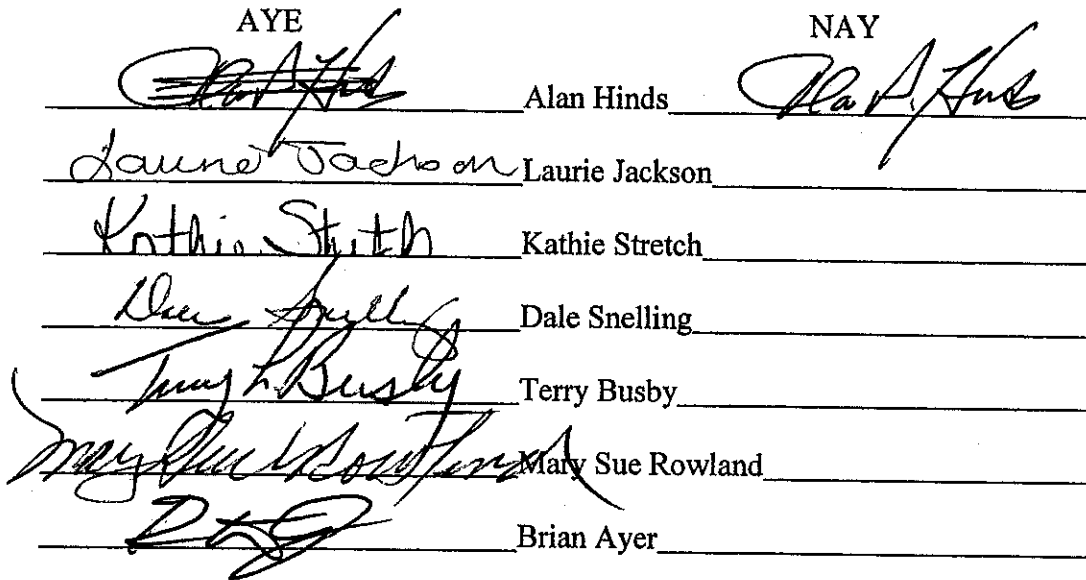 AYE NAY
Alan Hinds Alan P. Hinds
Laurie Jackson Laurie Jackson
Kathie Stretch Kathie Stretch
Dale Snelling Dale Snelling
Terry L. Busby Terry Busby
Mary Sue Rowland Mary Sue Rowland
Brian Ayer